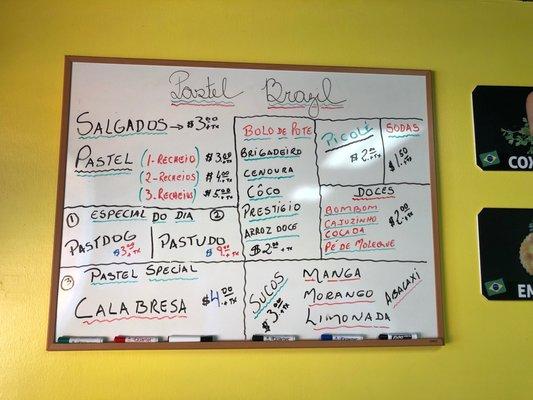 Pastel Brazil
SALGADOS → $3.00 + TX
PASTEL
(1-RECHEIO) $3.00 + TX
(2-RECHEIOS) $4.00 + TX
(3-RECHEIOS) $5.00 + TX
BOLO DE POTE
BRIGADEIRO
CENOURA
CÔCO
PRESTIGIO
ARROZ DOCE
$2.00 + TX
PICOLÉ
$2.00 + TX
SODAS
$1.50 + TX
DOCES
BOMBOM
CAJUZINHO
COCADA
PÉ DE MOLEQUE
$2.00 + TX
① ESPECIAL DO DIA ②
PASTDOG
PASTUDO
③ PASTEL SPECIAL
CALABRESA $4.00 + TX
SUCOS
$3.00 + TX
MANGA
MORANGO
LIMONADA
ABACAXI
COX
EM